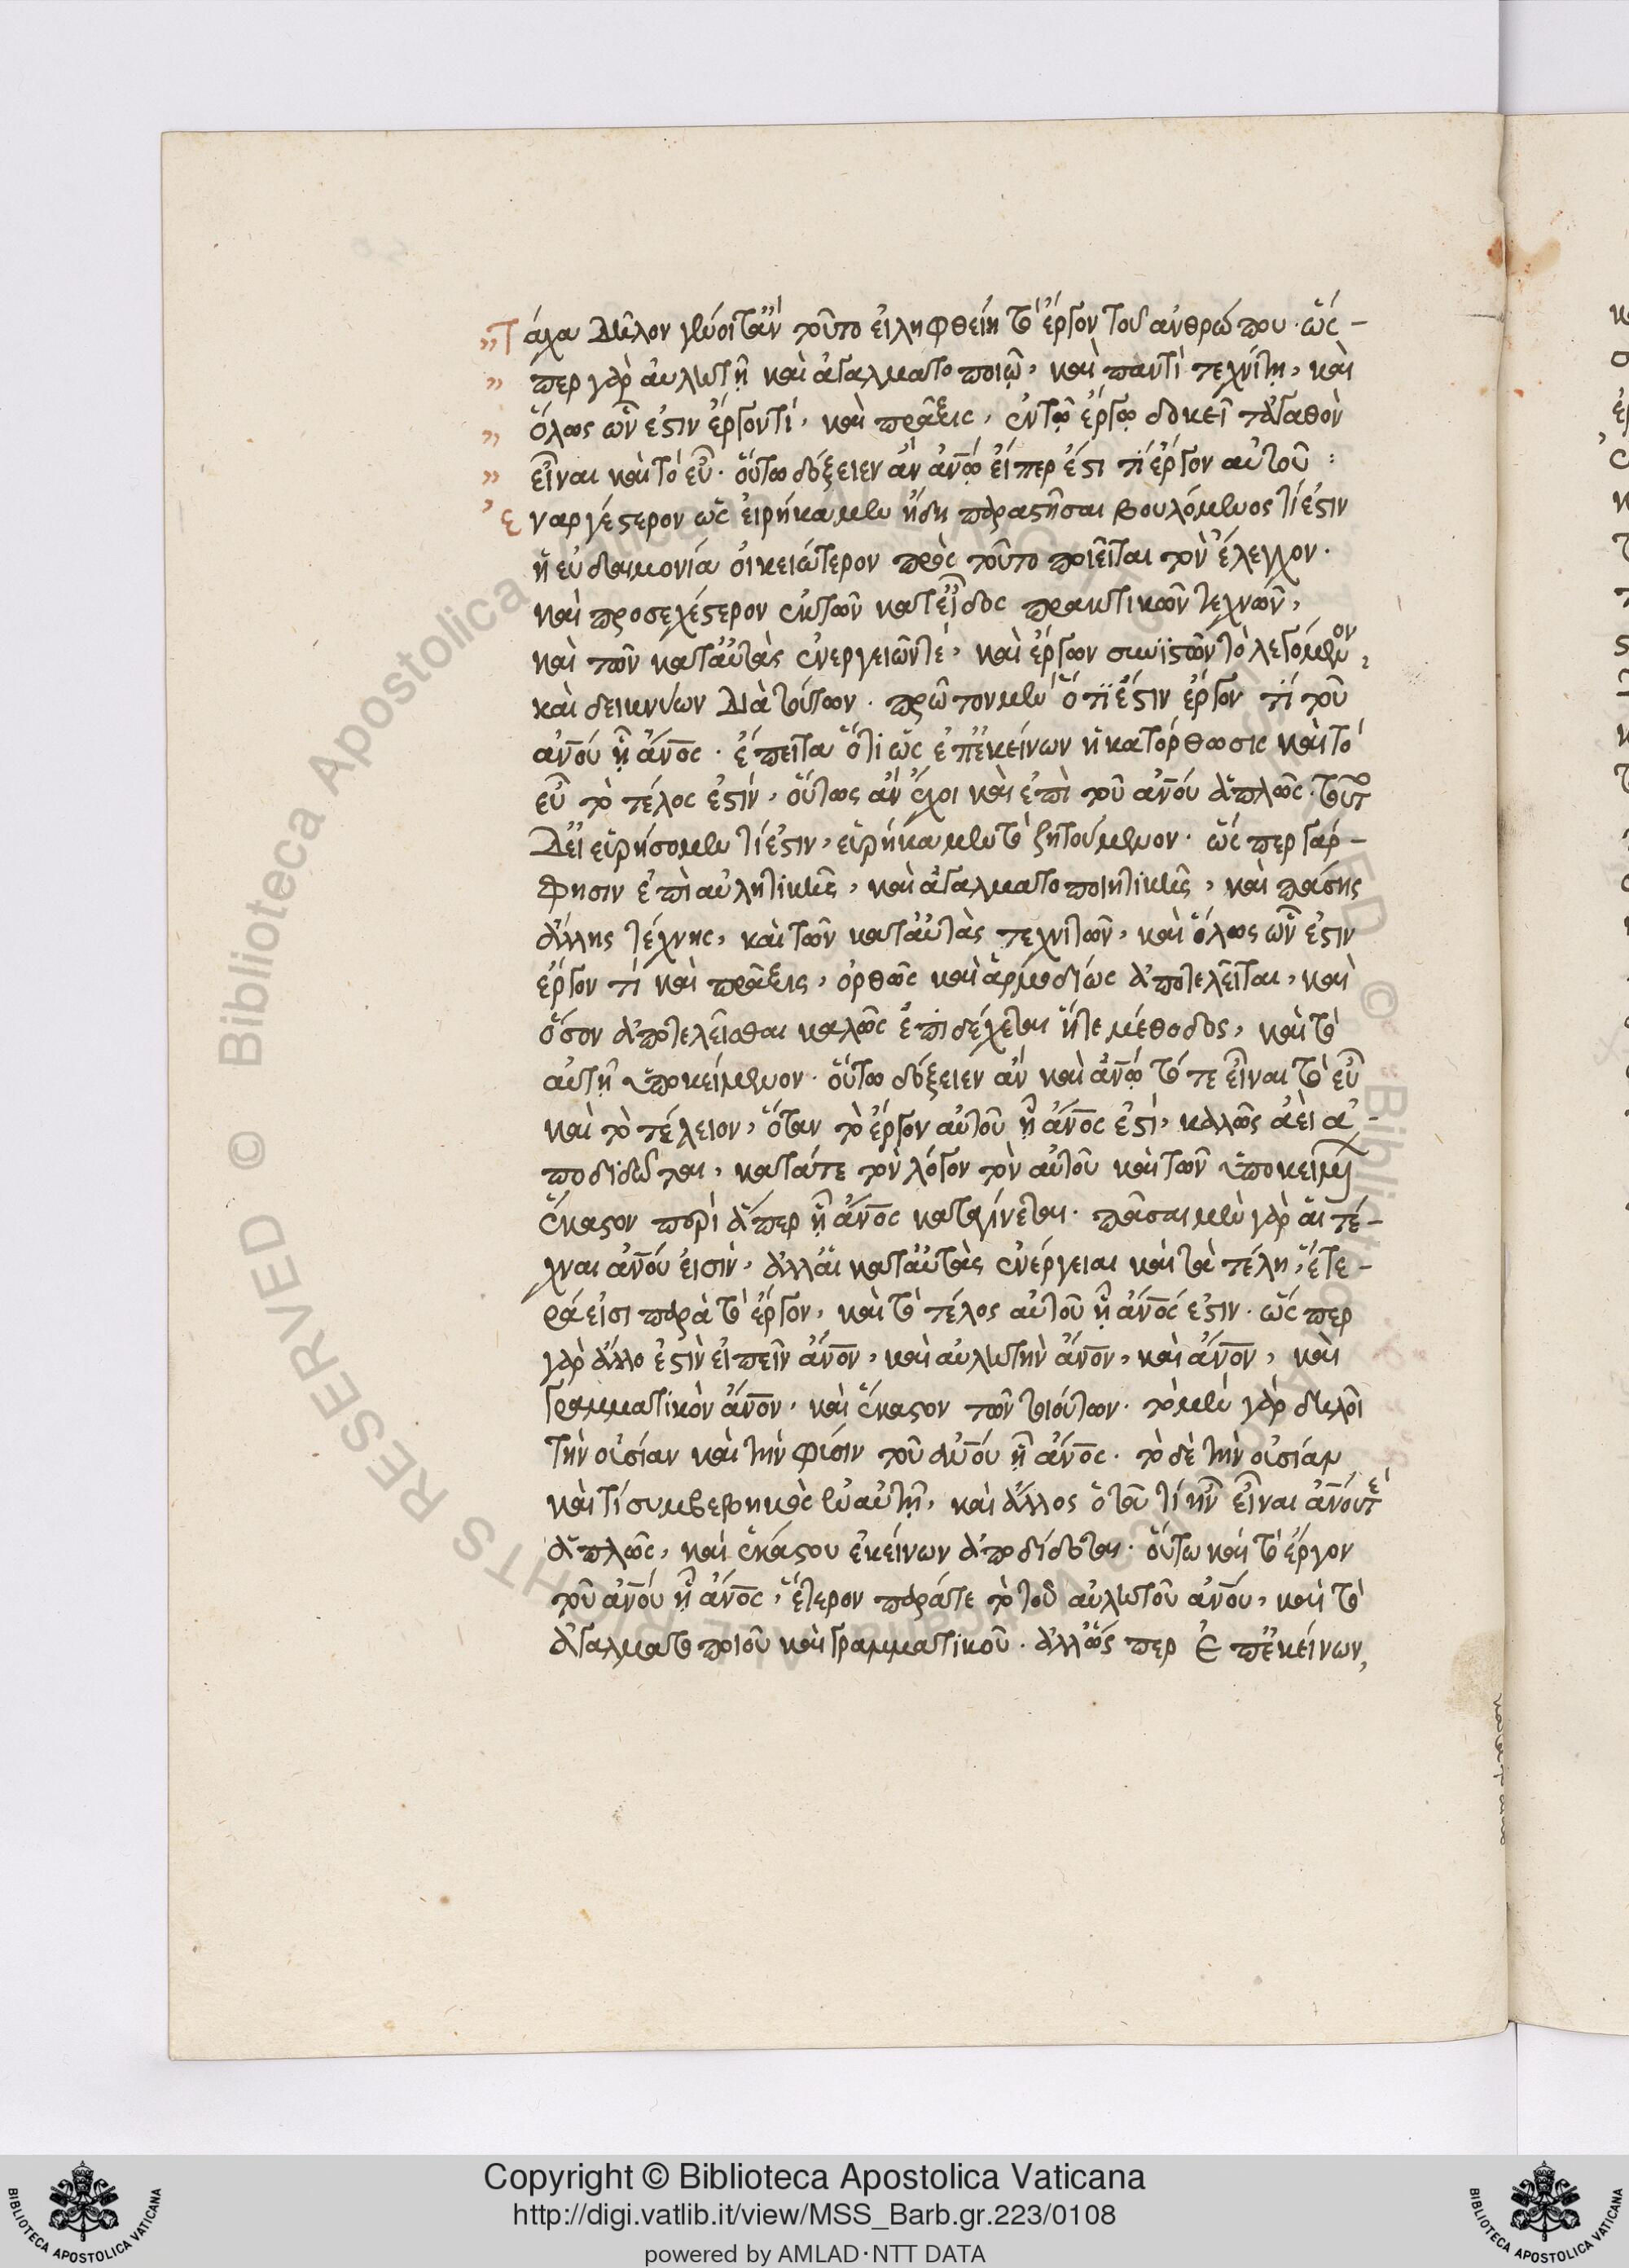 Τάχα δῆλον γένοιτ' ἂν τοῦτο εἰ ληφθείη τὸ ἔργον τοῦ ἀνθρώπου· ὥσ-
περ γὰρ αὐλητῇ καὶ ἀγαλματοποιῷ, καὶ παντὶ τεχνίτῃ, καὶ
ὅλως ὧν ἐστιν ἔργον τί, καὶ πρᾶξις, ἐν τῷ ἔργῳ δοκεῖ τἀγαθὸν
εἶναι καὶ τὸ εὖ· οὕτω δόξειεν ἂν ἀνῶ εἴπερ ἔστι τί ἔργον αὐτοῦ:
Εναργέστερον ὡς εἰρήκαμεν ἤδη παραστῆσαι βουλόμενος τί ἐστιν
ἡ εὐδαιμονία οἰκειώτερον πρὸς τοῦτο ποιεῖται τὸν ἔλεγχον·
καὶ προσεχέστερον ἐκ τῶν κατ' εἶδος πρακτικῶν τεχνῶν,
καὶ τῶν κατ' αὐτὰς ἐνεργειῶν τὲ, καὶ ἔργων συνιστῶν τὸ λεγόμενον,
καὶ δεικνύων διὰ τούτων· πρῶτον μὲν ὅτι ἔστιν ἔργον τί τοῦ
ἀνοῦ ᾗ ἄνος· ἔπειτα ὅτι ὡς ἐπ' ἐκείνων ἡ κατόρθωσις καὶ τὸ
εὖ τὸ τέλος ἐστίν, οὕτως ἂν ἔχοι καὶ ἐπὶ τοῦ ἀνοῦ ἁπλῶς· τοῦτο
δεῖ εἰρήσομεν τί ἐστιν, εἰρήκαμεν τὸ ζητούμενον· ὥσπερ γάρ-
φησιν ἐπὶ αὐλητικῆς, καὶ ἀγαλματοποιητικῆς, καὶ πάσης
ἄλλης τέχνης, καὶ τῶν κατ' αὐτὰς τεχνιτῶν, καὶ ὅλως ὧν ἐστιν
ἔργον τί καὶ πρᾶξις, ὀρθῶς καὶ ἁρμοδίως ἀποτελεῖται, καὶ
ὅσον ἀποτελεῖσθαι καλῶς ἐπιδέχεται ἥ τε μέθοδος, καὶ τὸ
αὐτῇ ὑποκείμενον· οὕτω δόξειεν ἂν καὶ ἀνῶ τό τε εἶναι τὸ εὖ
καὶ τὸ τέλειον, ὅταν τὸ ἔργον αὐτοῦ ᾗ ἄνος ἐστὶ, καλῶς ἀεὶ ἀ-
ποδιδῶται, κατά τε τὸν λόγον τὸν αὐτοῦ καὶ τῶν ὑποκειμ
ἕκαστον περὶ ἅπερ ᾗ ἄνος καταγίνεται· πᾶσαι μὲν γὰρ αἱ τέ-
χναι ἀνοῦ εἰσὶν, ἀλλ' αἱ κατ' αὐτὰς ἐνέργειαι καὶ τὰ τέλη, ἕτε-
ρά εἰσι παρὰ τὸ ἔργον, καὶ τὸ τέλος αὐτοῦ ᾗ ἄνός ἐστιν· ὥσπερ
γὰρ ἄλλο ἐστὶν εἰπεῖν ἄνον, καὶ αὐλητὴν ἄνον, καὶ ἄνον, καὶ
γραμματικὸν ἄνον, καὶ ἕκαστον τῶν τοιούτων· τὸ μὲν γὰρ δηλοῖ
τὴν οὐσίαν καὶ τὴν φύσιν τοῦ ἀνοῦ ᾗ ἄνος· τὸ δὲ τὴν οὐσίαν
καὶ τί συμβεβηκὸς ἐν αὐτῇ, καὶ ἄλλος ὅταν τί ἦν εἶναι ἀνού τὲ
ἁπλῶς, καὶ ἑκάστου ἐκείνων ἀποδίδοται· οὕτω καὶ τὸ ἔργον
τοῦ ἀνοῦ ᾗ ἄνος, ἕτερον παρά τε τὸ τοῦ αὐλητοῦ ἀνοῦ, καὶ τὸ
ἀγαλματοποιοῦ καὶ γραμματικοῦ· ἀλλ' ὥσπερ ἐπ' ἐκείνων,
Copyright © Biblioteca Apostolica Vaticana
http://digi.vatlib.it/view/MSS_Barb.gr.223/0108
powered by AMLAD·NTT DATA
BIBLIOTECA APOSTOLICA VATICANA
BIBLIOTECA APOSTOLICA VATICANA